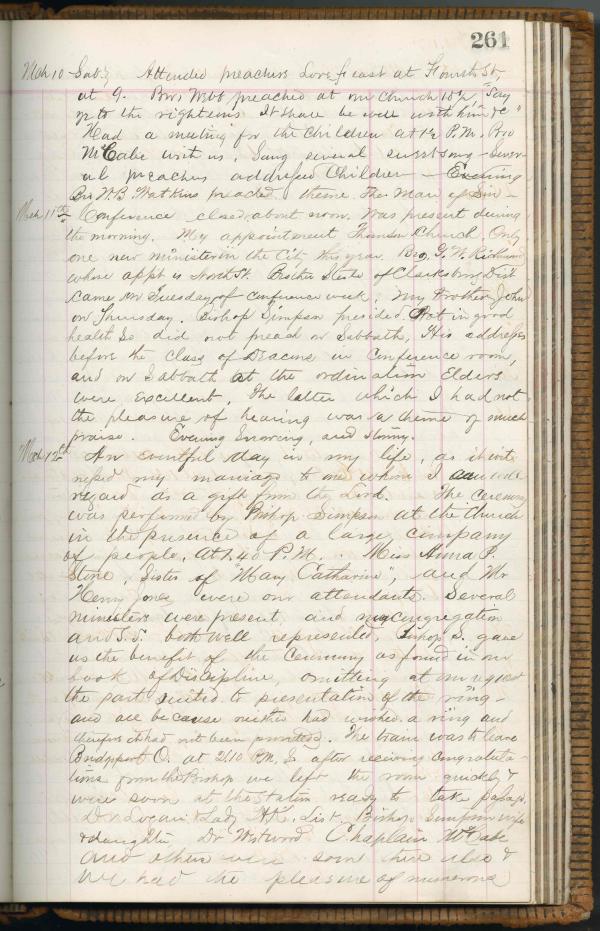 261
Mch 10 Sab. Attended preachers Love feast at Fourth St,
at 9. Bro. Webb preached at our church 10½, "Say
ye to the righteous It shall be well with him &c"
Had a meeting for the Children at 1½ P.M. Bro
McCabe with us, Sang several sweet songs - Sever-
al preachers addressed Children - Evening
Bro W.B. Watkins preached. theme The Man of Sin -
Mch 11th Conference closed about noon. Was present during
the morning. My appointment Thomson Church. Only
one new minister in the City this year. Bro. G. W. Richmond
whose appt is North St. Brother Steele of Clarksburg Dist
came on Tuesday of conference week. My brother John
on Thursday. Bishop Simpson presided. Not in good
health so did not preach on Sabbath, His addresses
before the class of Deacons in Conference room,
and on Sabbath at the ordination Elders
were Excellent. The latter which I had not
the pleasure of hearing was a theme of much
praise. Evening Snowing, and stormy.
Mch 12th An eventful day in my life, as it wit-
nessed my marriage to one whom I
regard as a gift from the Lord. The ceremony
was performed by Bishop Simpson at the Church
in the presence of a large company
of people, At 1.40 P.M. Miss Anna P.
Stone, Sister of "Mary Catharine", and Mr
Henry Jones were our attendants. Several
ministers were present and my congregation
and S.S. both well represented, Bishop S. gave
us the benefit of the Ceremony as found in our
book of Discipline, omitting at our request
the part suited to presentation of the ring -
and all because neither had wished a ring and
therefore it had not been provided. The train was to leave
Bridgeport O. at 2.10 P.M. So after receiving congratula-
tions from the Bishop we left the room quickly &
were soon at the Station ready to take passage.
Dr Logan & Lady A.K. List, Bishop Simpson wife
& daughter, Dr Westwood Chaplain McCabe
and others were soon there also &
we had the pleasure of numerous